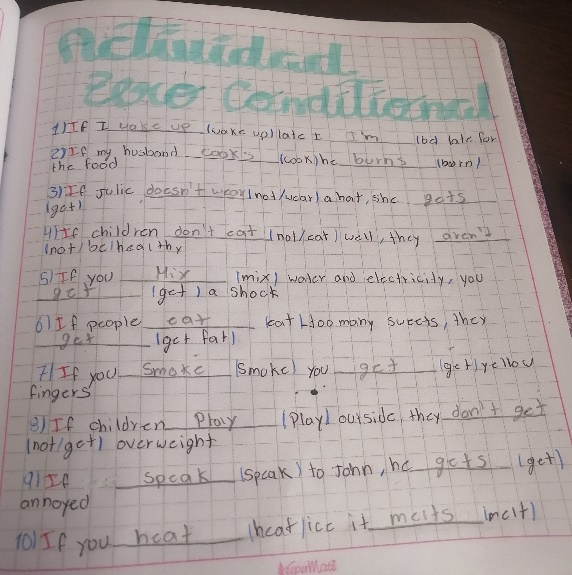 Actividad
Zero Conditional
1) If I wake up (wake up) late I I'm (be) late for
2) If my husband cooks (cook) he burns (burn)
the food
3) If Julie doesn't wear (not/wear) a hat, she gets
(get)
4) If children don't eat (not/eat) well, they aren't
(not/be) healthy
5) If you Mix (mix) water and electricity, you
get (get) a shock
6) If people eat (eat) too many sweets, they
get (get fat)
7) If you smoke (smoke) you get (get) yellow
fingers
8) If children Play (Play) outside, they don't get
(not/get) overweight
9) If speak (speak) to John, he gets (get)
annoyed
10) If you heat (heat) ice it melts (melt)
KeeperMate